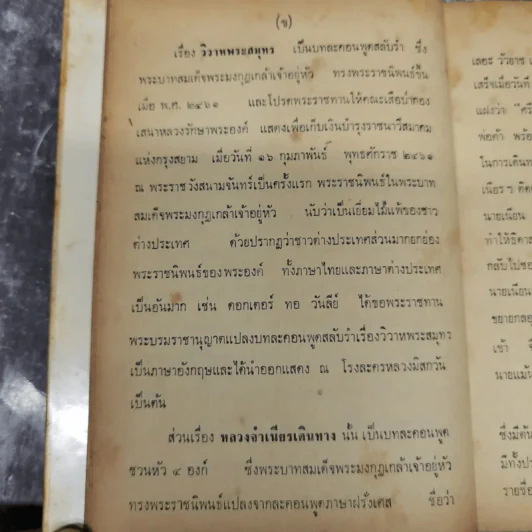 (ข)
เรื่อง วิวาหพระสมุทร เป็นบทละคอนพูดสลับรำ ซึ่ง
พระบาทสมเด็จพระมงกุฎเกล้าเจ้าอยู่หัว ทรงพระราชนิพนธ์ขึ้น
เมื่อ พ.ศ. ๒๔๖๑ และโปรดพระราชทานให้คณะเสือป่ากอง
เสนาหลวงรักษาพระองค์ แสดงเพื่อเก็บเงินบำรุงราชนาวีสมาคม
แห่งกรุงสยาม เมื่อวันที่ ๑๖ กุมภาพันธ์ พุทธศักราช ๒๔๖๑
ณ พระราชวังสนามจันทร์เป็นครั้งแรก พระราชนิพนธ์ในพระบาท
สมเด็จพระมงกุฎเกล้าเจ้าอยู่หัว นับว่าเป็นเยี่ยมไม่แพ้ของชาว
ต่างประเทศ ด้วยปรากฏว่าชาวต่างประเทศส่วนมากยกย่อง
พระราชนิพนธ์ของพระองค์ ทั้งภาษาไทยและภาษาต่างประเทศ
เป็นอันมาก เช่น ดอกเตอร์ ทอ วันลีย์ ได้ขอพระราชทาน
พระบรมราชานุญาตแปลงบทละคอนพูดสลับรำเรื่องวิวาหพระสมุทร
เป็นภาษาอังกฤษและได้นำออกแสดง ณ โรงละครหลวงมิสกวัน
เป็นต้น
ส่วนเรื่อง หลวงจำเนียรเดินทาง นั้น เป็นบทละคอนพูด
ชวนหัว ๔ องก์ ซึ่งพระบาทสมเด็จพระมงกุฎเกล้าเจ้าอยู่หัว
ทรงพระราชนิพนธ์แปลงจากละคอนพูดภาษาฝรั่งเศส ชื่อว่า
เสร็จเมื่อวันที่
พ่อค้า พร้อ
ในการเดินท
นายเนียน
กลับไปขอ
นายเนียน
ขยายกลอ
เข้า
นายแม้น
ซึ่งมีต้น
มีทั้งปร
รายชื่อ